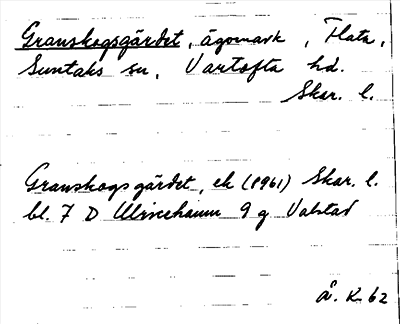 Granskogsgärdet, ägomark, Flata,
Suntaks sn, Vartofta hd.
Skar. l.
Granskogsgärdet, ek (1961) Skar. l.
bl. 7 D Ulricehamn 9 g Valstad
Å. K 62